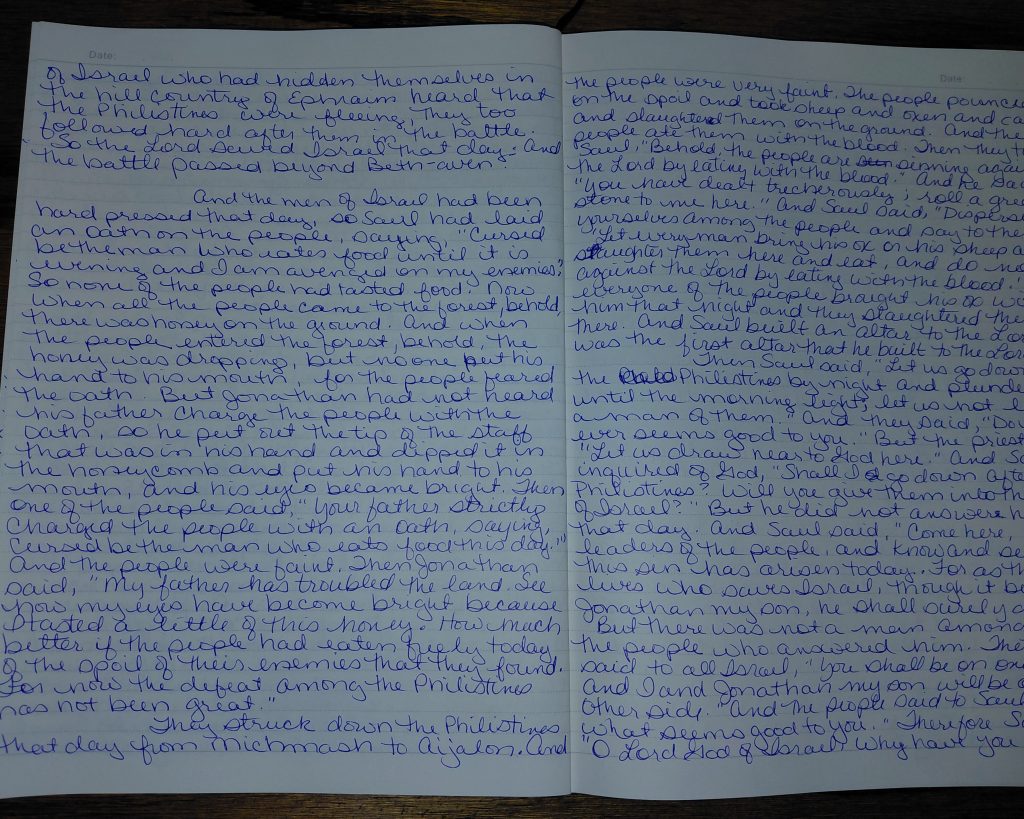 Date:
of Israel who had hidden themselves in
the hill country of Ephraim heard that
the Philistines were fleeing, they too
followed hard after them in the battle.
So the Lord saved Israel that day. And
the battle passed beyond Beth-aven
And the men of Israel had been
hard pressed that day, so Saul had laid
an oath on the people, saying, "Cursed
be the man who eats food until it is
evening and I am avenged on my enemies."
So none of the people had tasted food. Now
when all the people came to the forest, behold,
there was honey on the ground. And when
the people entered the forest, behold, the
honey was dropping, but no one put his
hand to his mouth, for the people feared
the oath. But Jonathan had not heard
his father charge the people with the
oath, so he put out the tip of the staff
that was in his hand and dipped it in
the honeycomb and put his hand to his
mouth, and his eyes became bright. Then
one of the people said, "Your father strictly
charged the people with an oath, saying,
Cursed be the man who eats food this day."
And the people were faint. Then Jonathan
said, "My father has troubled the land. See
how my eyes have become bright because
I tasted a little of this honey. How much
better if the people had eaten freely today
of the spoil of their enemies that they found.
For now the defeat among the Philistines
has not been great."
They struck down the Philistines
that day from Michmash to Aijalon. And
Date:
the people were very faint. The people pounced
on the spoil and took sheep and oxen and
and slaughtered them on the ground. And the
people ate them with the blood. Then they
Saul, "Behold, the people are sinning
the Lord by eating with the blood." And he
"You have dealt trecherously; roll a
stone to me here." And Saul said, "Disperse
yourselves among the people and say to
'Let every man bring his ox or his sheep
slaughter them here and eat, and do
against the Lord by eating with the blood.'
everyone of the people braught his ox
him that night and they slaughtered
there. And Saul built an altar to the
was the first altar that he built to the
Then Saul said, "Let us go down
the Philistines by night and
until the morning light; let us not
a man of them." And they said, "Do
ever seems good to you." But the priest
"Let us draw near to God here." And
inquired of God, "Shall I go down
Philistines? Will you give them into
of Israel?" But he did not answere
that day. And Saul said, "Come here,
leaders of the people, and know and
this sin has arisen today. For as
lives who saves Israel, though it
Jonathan my son, he shall surely
But there was not a man among
the people who answered him. Then
said to all Israel, "You shall be on
and I and Jonathan my son will be
other side." And the people said to Saul
What seems good to you." Therefore
"O Lord God of Israel, why have you